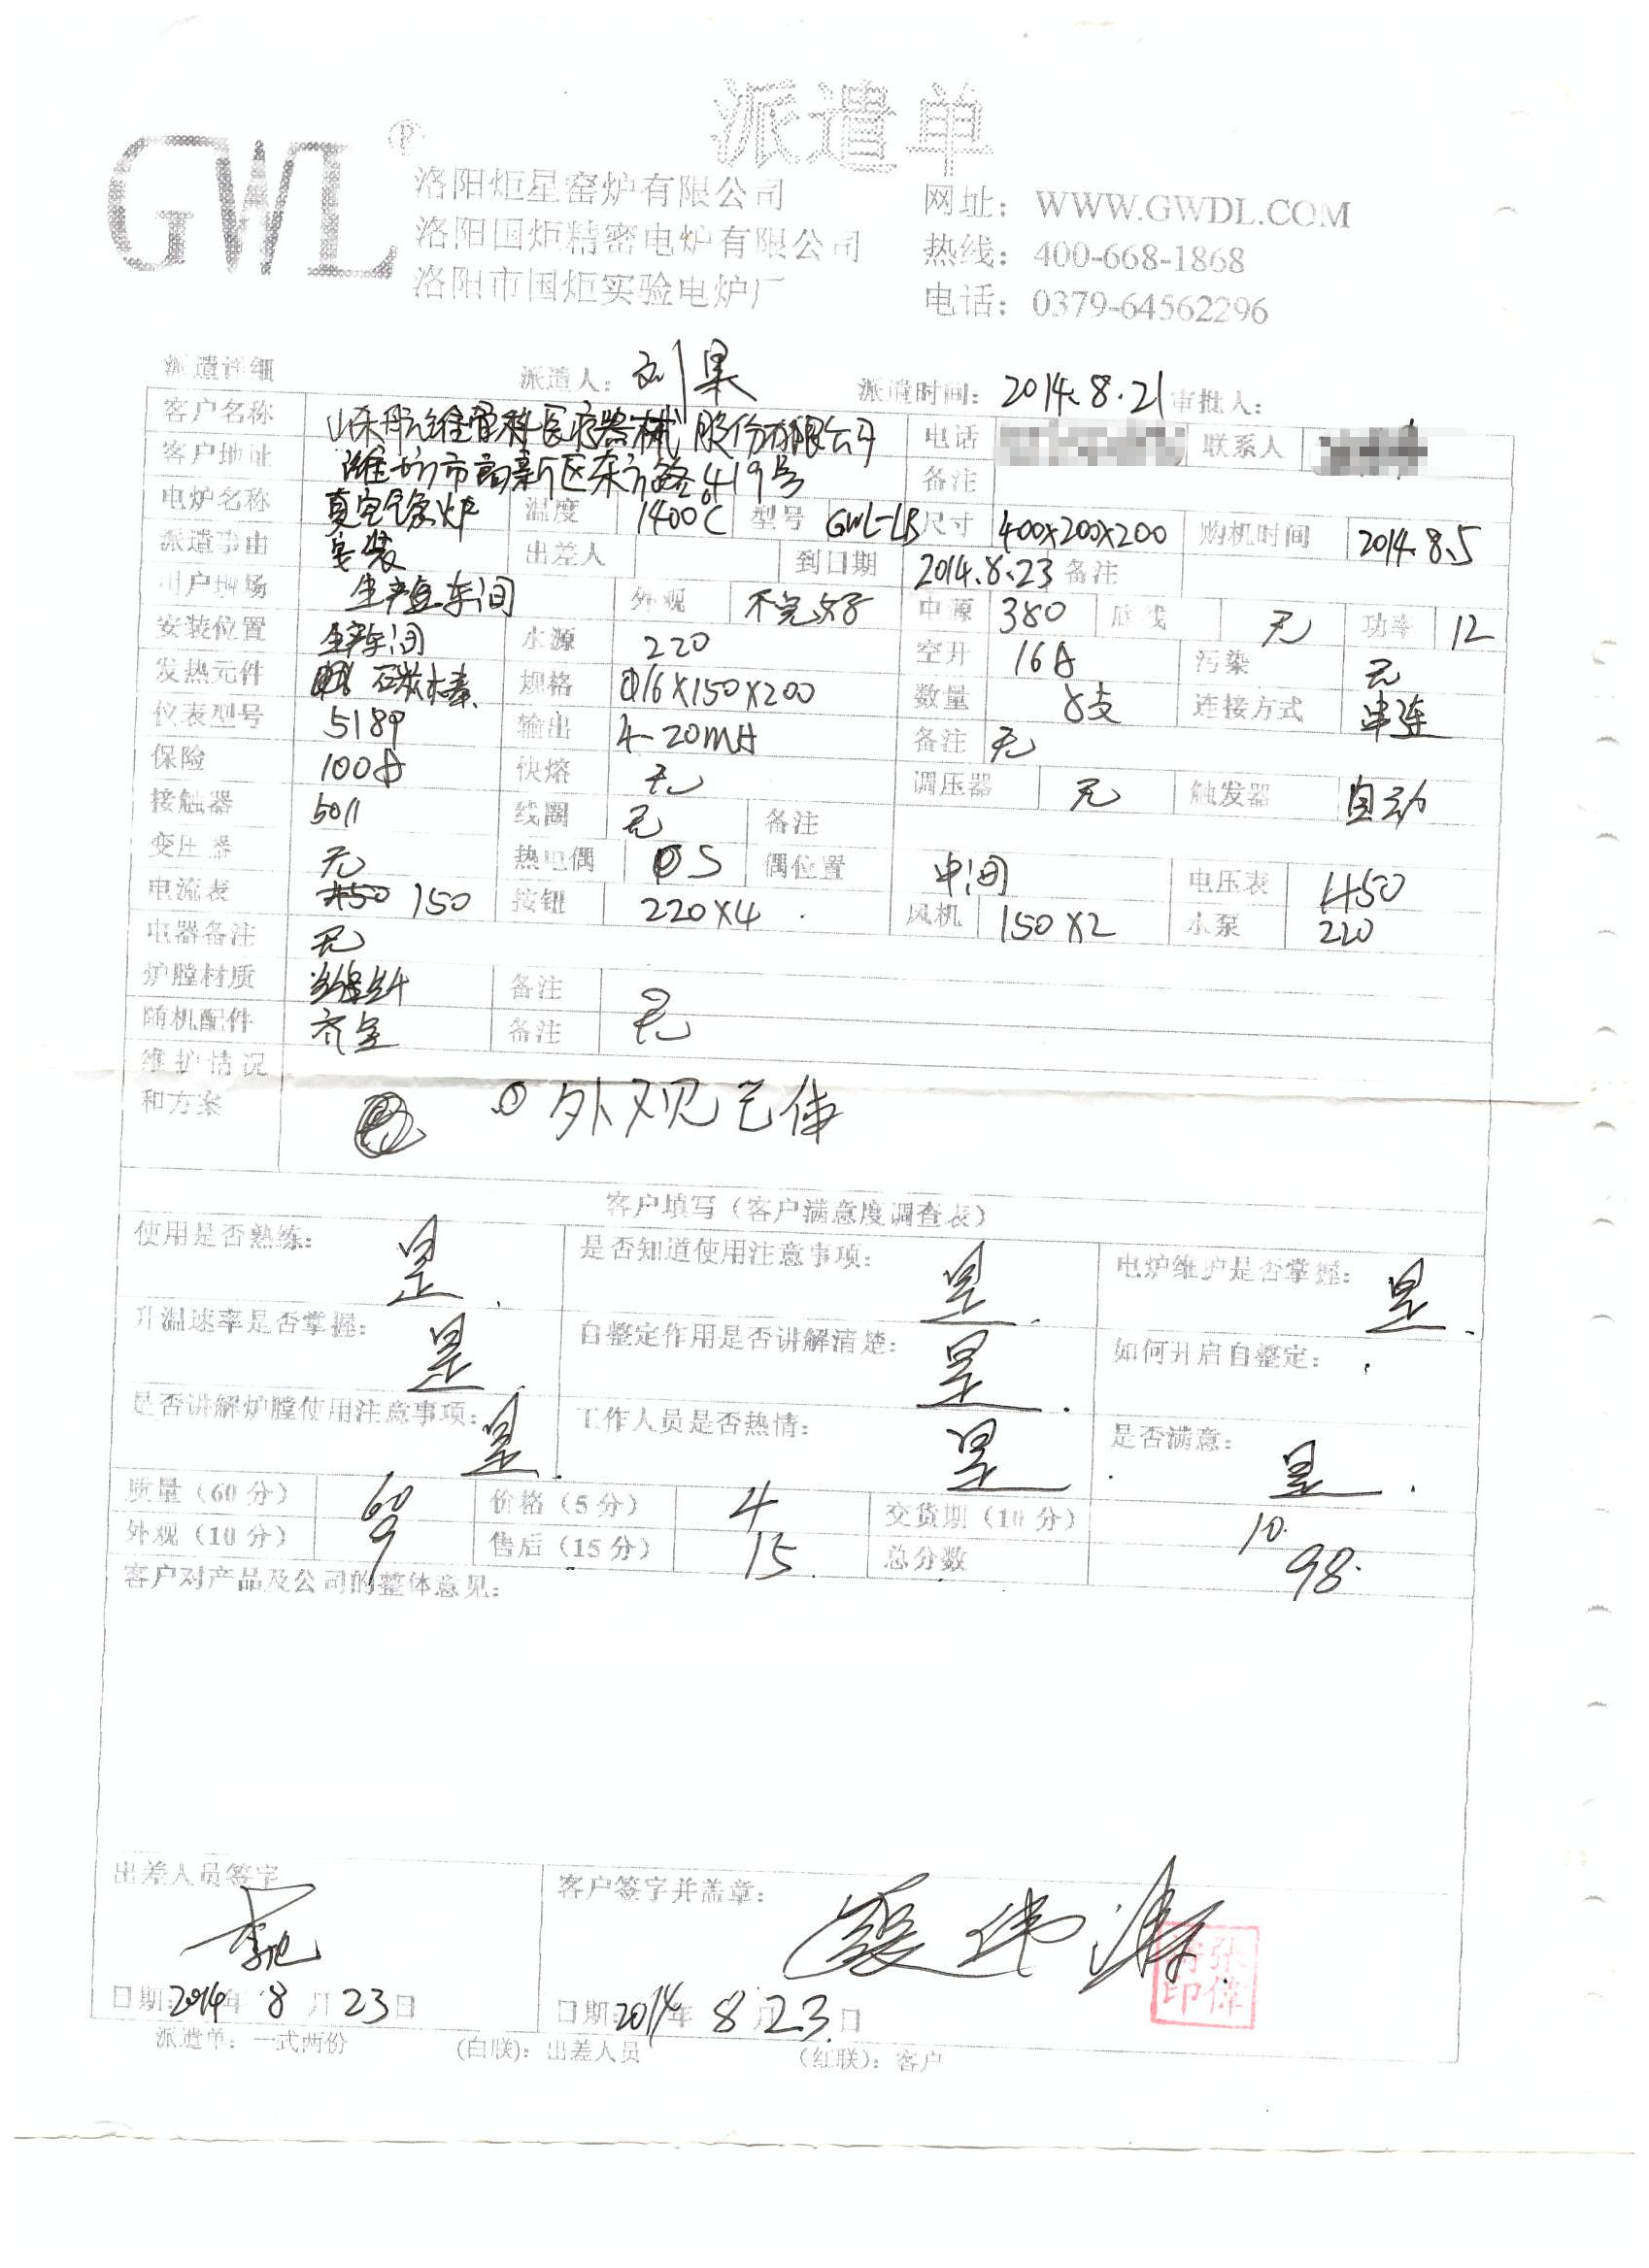 派遣单
GWL®
洛阳炬星窑炉有限公司 网址: WWW.GWDL.COM
洛阳国炬精密电炉有限公司 热线: 400-668-1868
洛阳市国炬实验电炉厂 电话: 0379-64562296
派遣详细 派遣人: 刘果 派遣时间: 2014.8.21 审批人:
客户名称 山东航维骨科医疗器械股份有限公司 电话 联系人
客户地址 潍坊市高新区东方路419号 备注
电炉名称 真空气氛炉 温度 1400℃ 型号 GWL-LB 尺寸 400x200x200 购机时间 2014.8.5
派遣事由 安装 出差人 到日期 2014.8.23 备注
用户现场 生产车间 外观 不完好 电源 380 底线 无 功率 12
安装位置 生产车间 水源 220 空开 16A 污染 无
发热元件 硅碳棒 规格 Φ16X150X200 数量 8支 连接方式 串连
仪表型号 518P 输出 4-20mA 备注 无
保险 100A 快熔 无 调压器 无 触发器 自动
接触器 5011 线圈 无 备注
变压器 无 热电偶 S 偶位置 中间 电压表 450
电流表 150 按钮 220X4 风机 150X2 水泵 220
电器备注 无
炉膛材质 备注 无
随机配件 齐全 备注 无
维护情况
和方案 外观
客户填写（客户满意度调查表）
使用是否熟练: 是. 是否知道使用注意事项: 是. 电炉维护是否掌握: 是.
升温速率是否掌握: 是. 自整定作用是否讲解清楚: 是. 如何开启自整定:
是否讲解炉膛使用注意事项: 是. 工作人员是否热情: 是. 是否满意: 是.
质量（60分） 60 价格（5分） 4 交货期（10分） 10.
外观（10分） 9 售后（15分） 15. 总分数 98.
客户对产品及公司的整体意见:
出差人员签字 客户签字并盖章:
张伟
印
日期: 2014年 8月23日 日期: 2014年 8月23日
派遣单: 一式两份 (白联): 出差人员 (红联): 客户